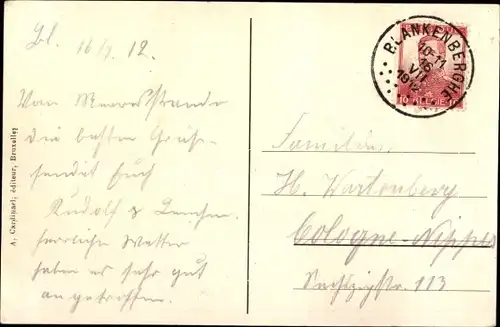 Bl. 16/7. 12.
Vom Meeresstrande
die besten Grüs-
sendet Euch
Rudolf &
herrliche Wetter
haben es sehr gut
angetroffen.
A. Cardinael, éditeur, Bruxelles
BLANKENBERGHE
10-11
16
VII
1912
10
Familie
H. Wartenberg
Cologne-Nippes
Sechzigstr. 113